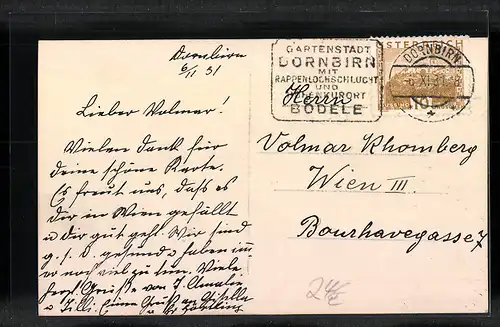 Dornbirn
6/II 31
Lieber Volmar!
Vielen Dank für
deine schöne Karte.
Es freut uns, dass es
dir in Wien gefällt
u dir gut geht. Wir sind
g. s. d. gesund u haben im̅
er noch viel zu tun. Viele
herzl. Grüße von
u Eine Gruß an
GARTENSTADT
DORNBIRN
MIT
RAPPENLOCHSCHLUCHT
UND
HÖHENKURORT
BÖDELE
ÖSTERREICH
DORNBIRN
Herrn
Volmar Rhomberg
Wien III.
Bourhavegasse 7